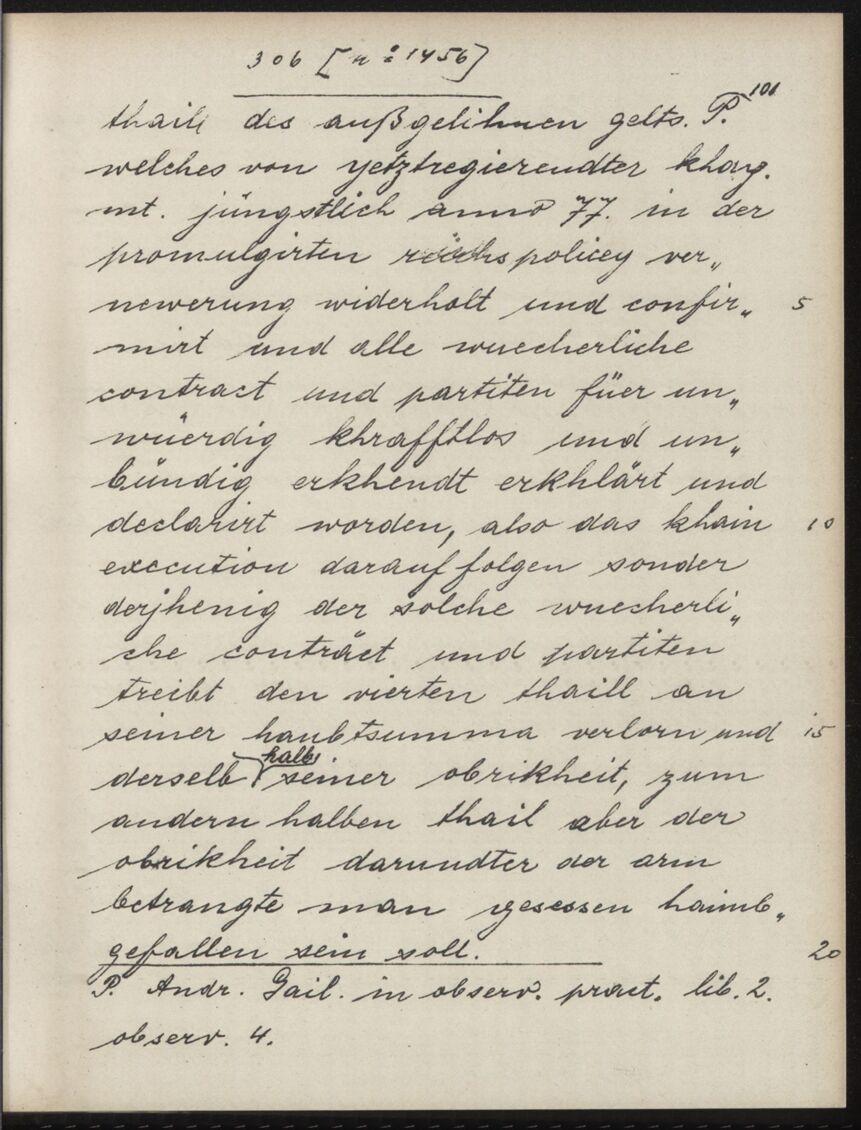 306 [nº 1456]
101
thaill des außgelihnen gelts. P.
welches von yetztregierendter khay.
mt. jüngstlich anno 77. in der
promulgirten reichspolicey ver„
newerung widerholt und confir„ 5
mirt und alle wuecherliche
contract und partiten füer un„
wüerdig khrafftlos und un„
bündig erkhendt erkhlärt und
declarirt worden, also das khain 10
execution darauf folgen sonder
derjhenig der solche wuecherli„
che conträct und partiten
treibt den vierten thaill an
seiner haubtsumma verlorn und 15
derselb halb seiner obrikheit, zum
andern halben thail aber der
obrikheit darundter der arm
betrangte man gesessen haimb„
gefallen sein soll. 20
P. Andr. Gail. in observ. pract. lib. 2.
observ. 4.